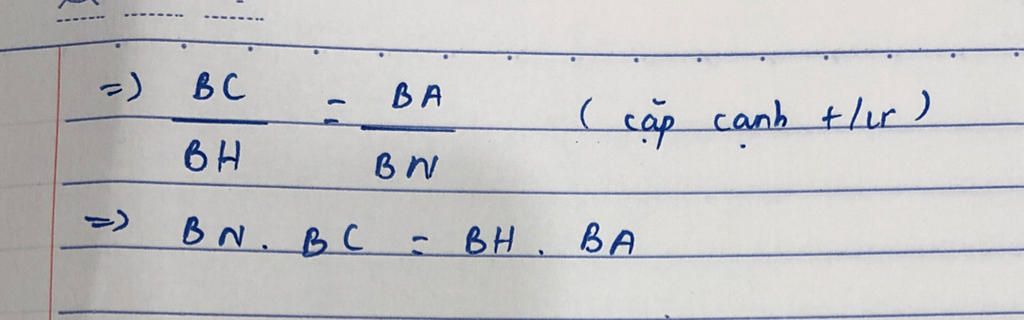 =) BC/BH = BA/BN (cặp cạnh t/lư)
=> BN. BC = BH. BA